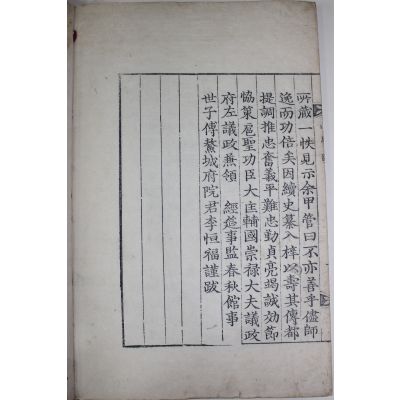 所藏一帙見示余甲管曰不亦善乎儘師
逸而功倍矣因續史纂入梓以壽其傳都
提調推忠奮義平難忠勤貞亮竭誠効節
恊策扈聖功臣大匡輔國崇祿大夫議政
府左議政兼領 經筵事監春秋館事
世子傅鰲城府院君李恒福謹跋